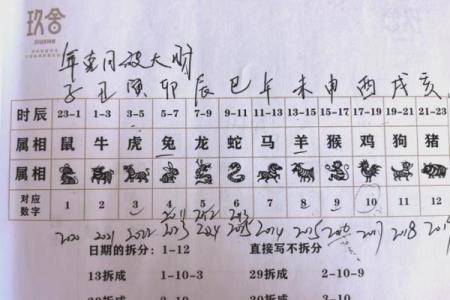 玖舍
年克月破大财
子 丑 寅 卯 辰 巳 午 未 申 酉 戌 亥
时辰 23-1 1-3 3-5 5-7 7-9 9-11 11-13 13-15 15-17 17-19 19-21 21-23
属相 鼠 牛 虎 兔 龙 蛇 马 羊 猴 鸡 狗 猪
属相
对应数字 1 2 3 4 5 6 7 8 9 10 11 12
2020 2021 2022 2023 2024 2025 2014 2025 2017 2018
日期的拆分：1-12 直接写不拆分
13拆成 1-10-3 29拆成 2-10-9